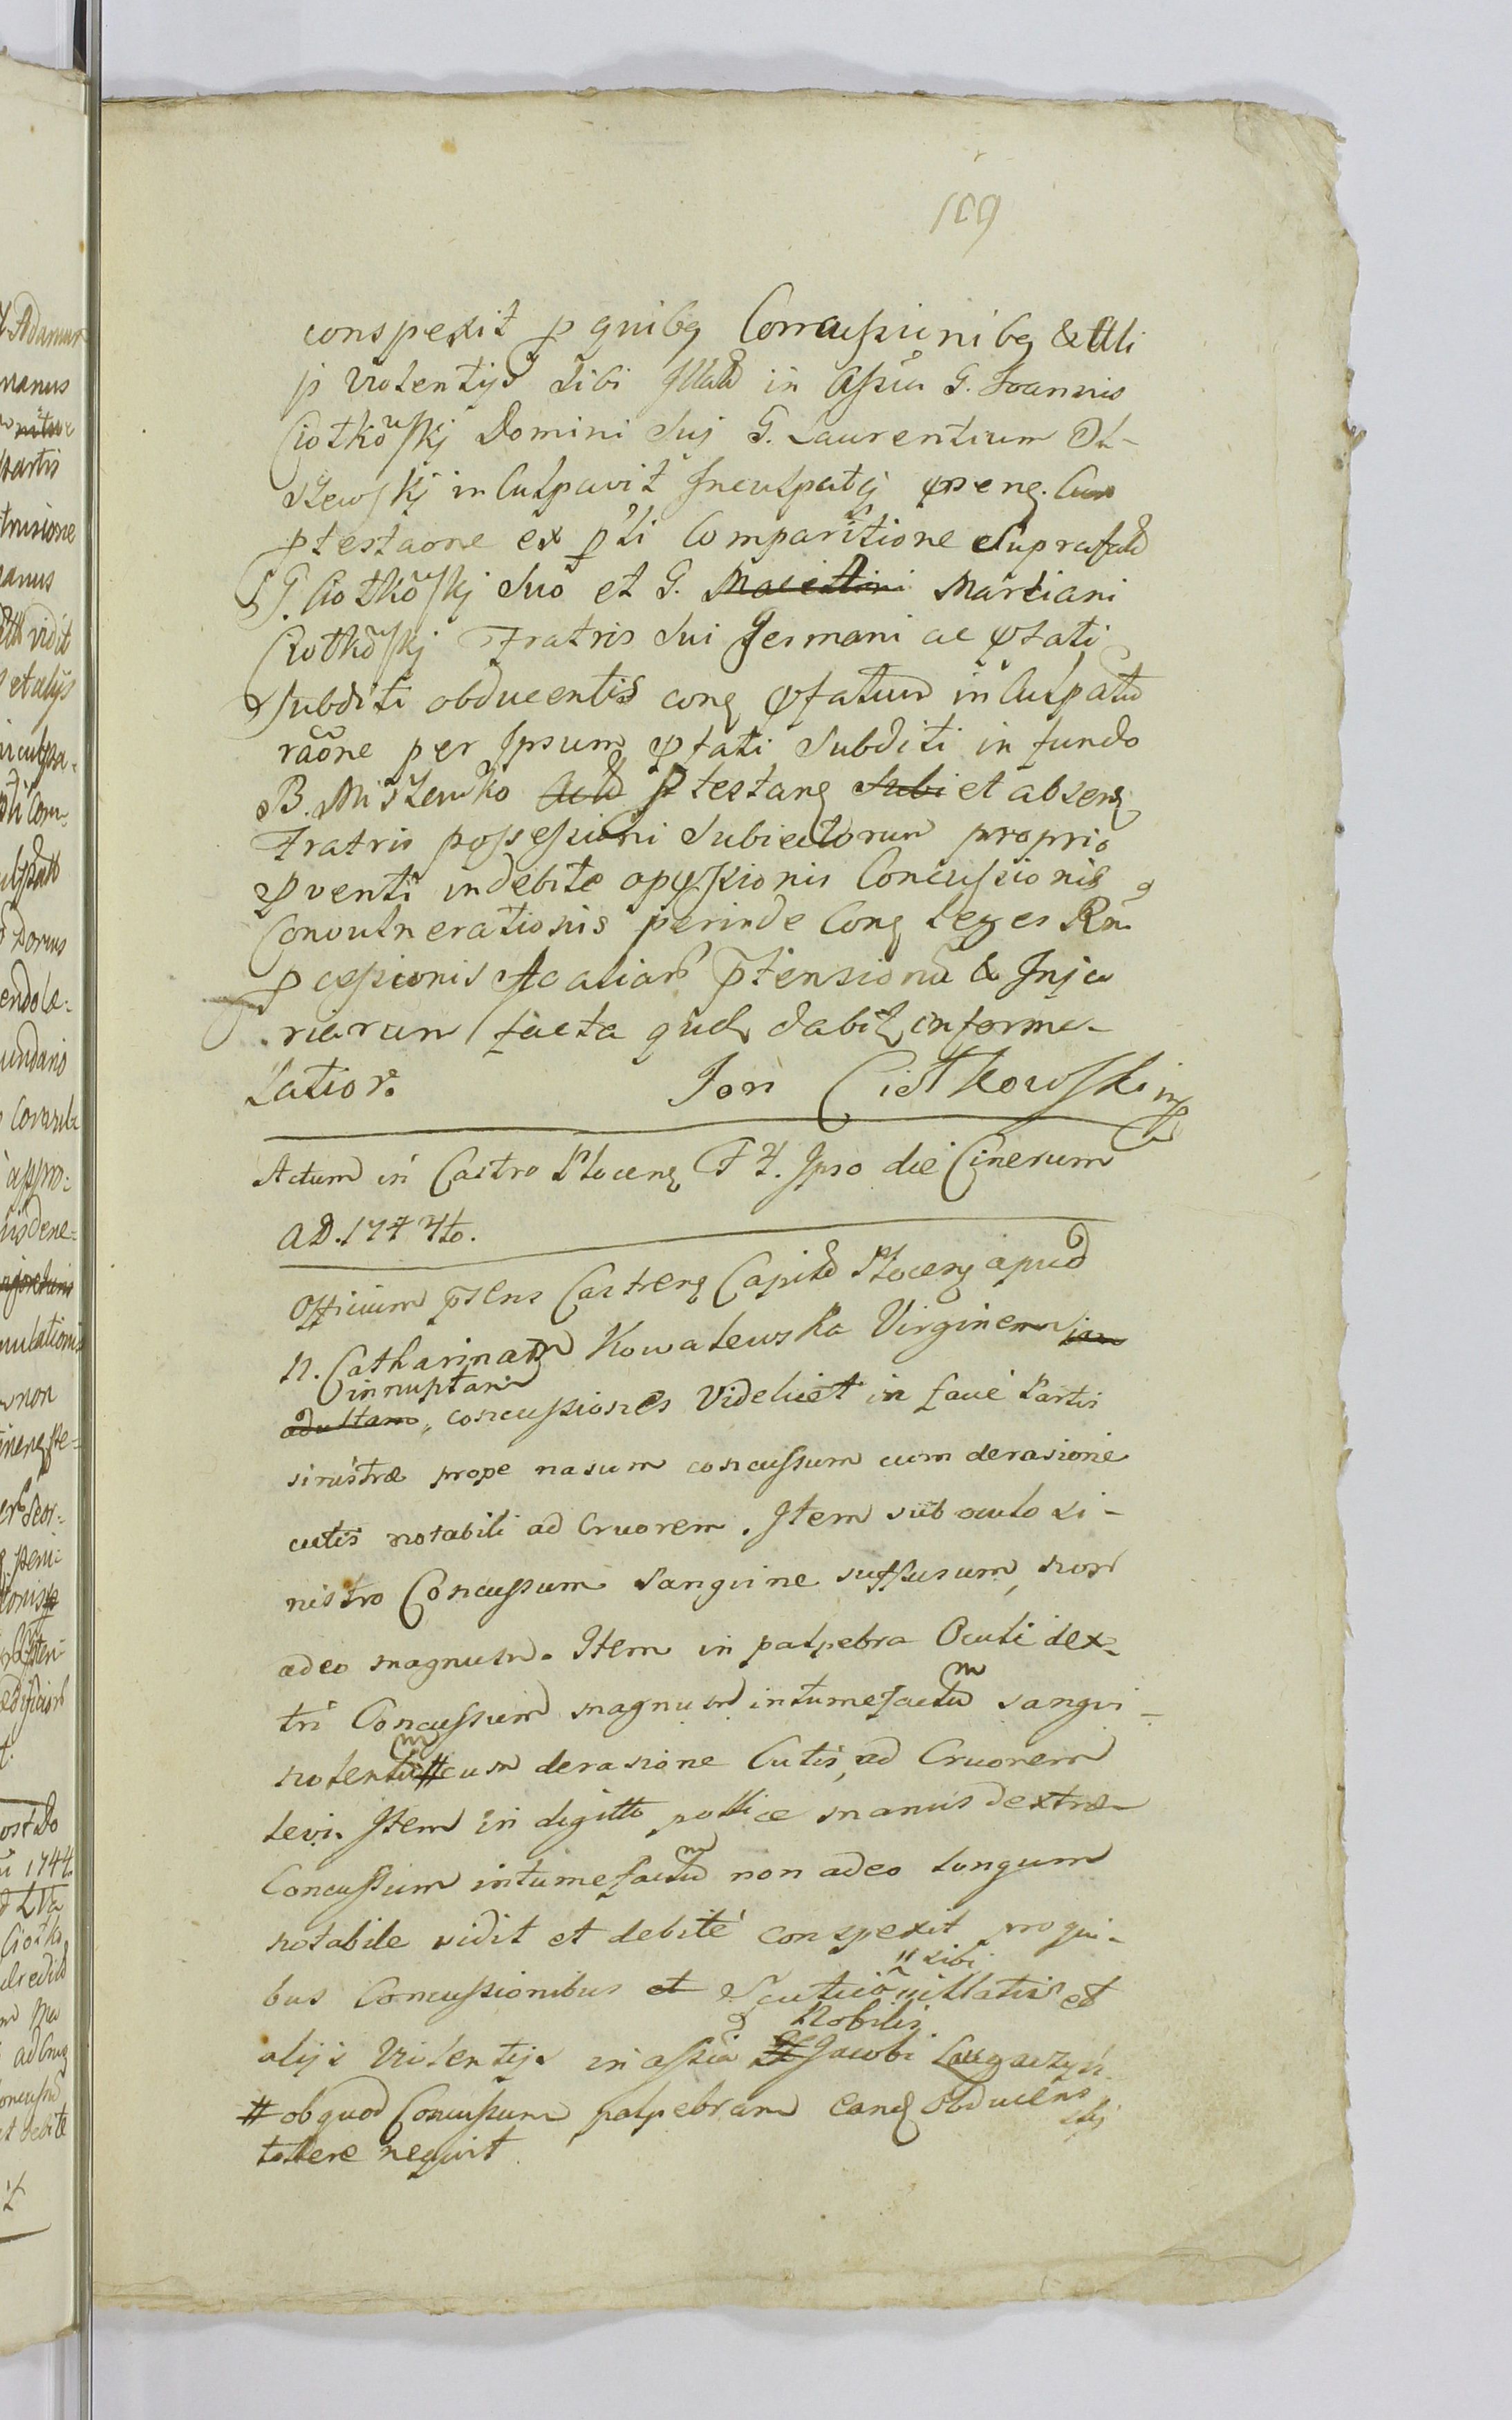 109
conspexit p quibq Concussionibq & Ali
js violentijs sibi Illatis in Assña G. Joannis
Ciotkowskj Domini Suj G. Laurentium Ol-
szewskj inculpavit Inculpatq præsenq. Cum
ptestaone ex pti Comparitione Suprafati
G. Ciotkowskj Suo et G. Marciani
Ciotkowskj Fratris Sui Germani ac pfati
Subditi obducentis conq pfatum inculpatum
raõne per Ipsum pfati Subditi in fundo
B. Miszewko ptestanq et absenq
Fratris possessioni Subiectorum proprio
pventi indebite oppssionis Concussionis
Convulnerationis perinde Conq leges Rñi
pcessionis Ac aliar ptensionu & Inju
riarum facta qud dabit informa-
latior. Jan Ciotkowski mp
Actum in Castro Plocenq F 4. Ipso die Cinerum
AD. 1744to.
Officium pñens Castrenq Capitl Plocenq apud
N. Catharinam Kowalewska Virginem
innuptam
adultam, concussiones Videlicet in facie Partis
sinistræ prope nasum concussum cum derasione
cutis notabili ad Cruorem. Item sub oculo si-
nistro Concussum Sanguine suffusum, non
adeo magnum. Item in palpebra Oculi dex-
tri Concussum magnum intumefactum sangvi-
nolentum # cum derasione Cutis, ad Cruorem
levi. Item in digitto pollice manus dextræ
Concussum intumefactum non adeo longum
notabile vidit et debité conspexit pro qui-
sibi
bus Concussionibus et illatis et
Nobilis
alijs Violentijs in assña Jacobi
# ob quod Concussum palpebram eanq Obducens
tollere nequit.